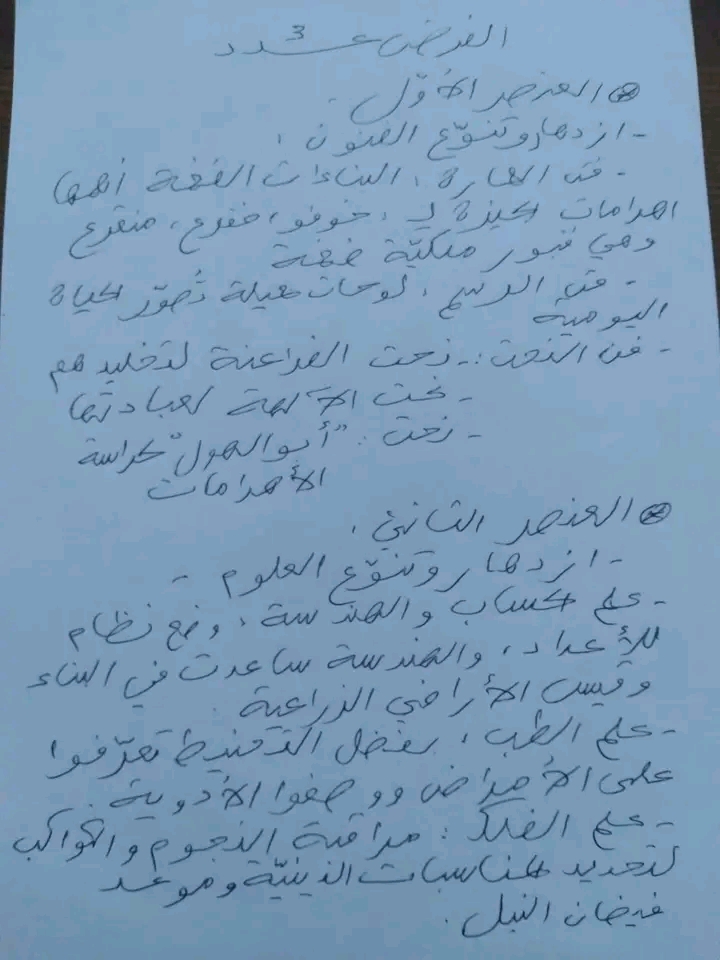 الفرض عـــدد 3
⊛ العنصر الأوّل :
- ازدهار وتنوّع الفنون :
- فن العمارة : البناءات الضخمة أهمها
اهرامات الجيزة لـ : خوفو، خفرع، منقرع
وهي قبور ملكيّة ضخمة
- فن الرسم : لوحات جميلة تُصوّر الحياة
اليومية
- فن النحت : - نحت الفراعنة لتخليدهم
- نحت الآلهة لعبادتها
- نحت : "أبو الهول" لحراسة
الأهرامات
⊛ العنصر الثاني :
- ازدهار وتنوّع العلوم -
- علم الحساب والهندسة : وضع نظام
للأعداد، والهندسة ساعدت في البناء
وقيس الأراضي الزراعية .
- علم الطب : بفضل التحنيط تعرّفوا
على الأمراض ووصفوا الأدوية .
- علم الفلك : مراقبة النجوم والكواكب
لتحديد المناسبات الدينيّة وموعد
فيضان النيل .